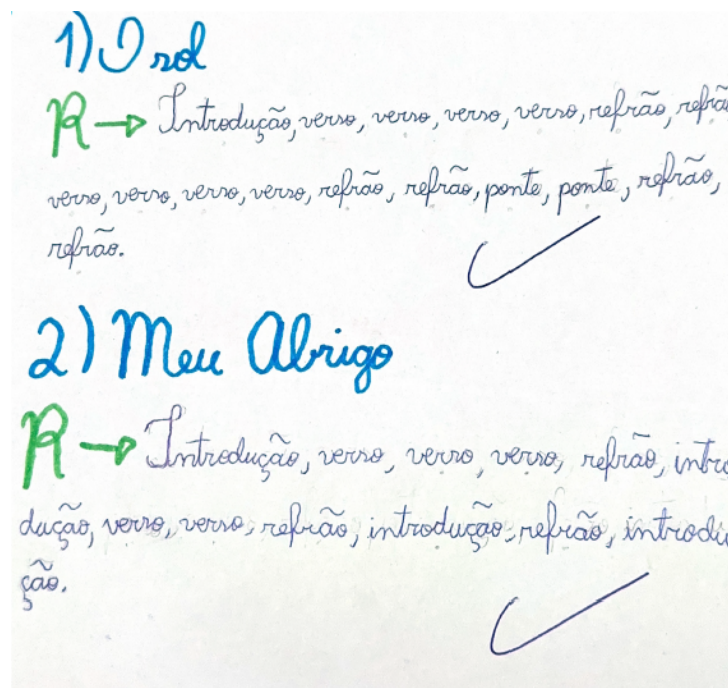 1) O sol
R → Introdução, verso, verso, verso, verso, refrão, refrã
verso, verso, verso, verso, refrão, refrão, ponte, ponte, refrão,
refrão.
2) Meu Abrigo
R → Introdução, verso, verso, verso, refrão, intro
dução, verso, verso, refrão, introdução, refrão, introdu
ção.